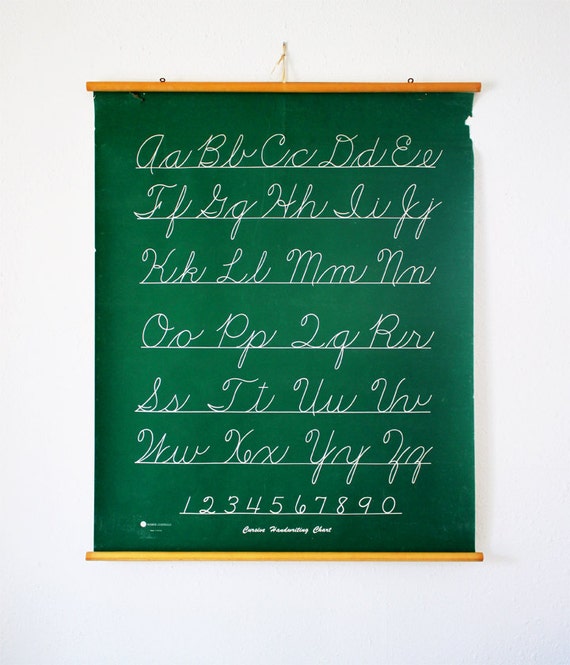 Aa Bb Cc Dd Ee
Ff Gg Hh Ii Jj
Kk Ll Mm Nn
Oo Pp Qq Rr
Ss Tt Uu Vv
Ww Xx Yy Zz
1 2 3 4 5 6 7 8 9 0
Cursive Handwriting Chart